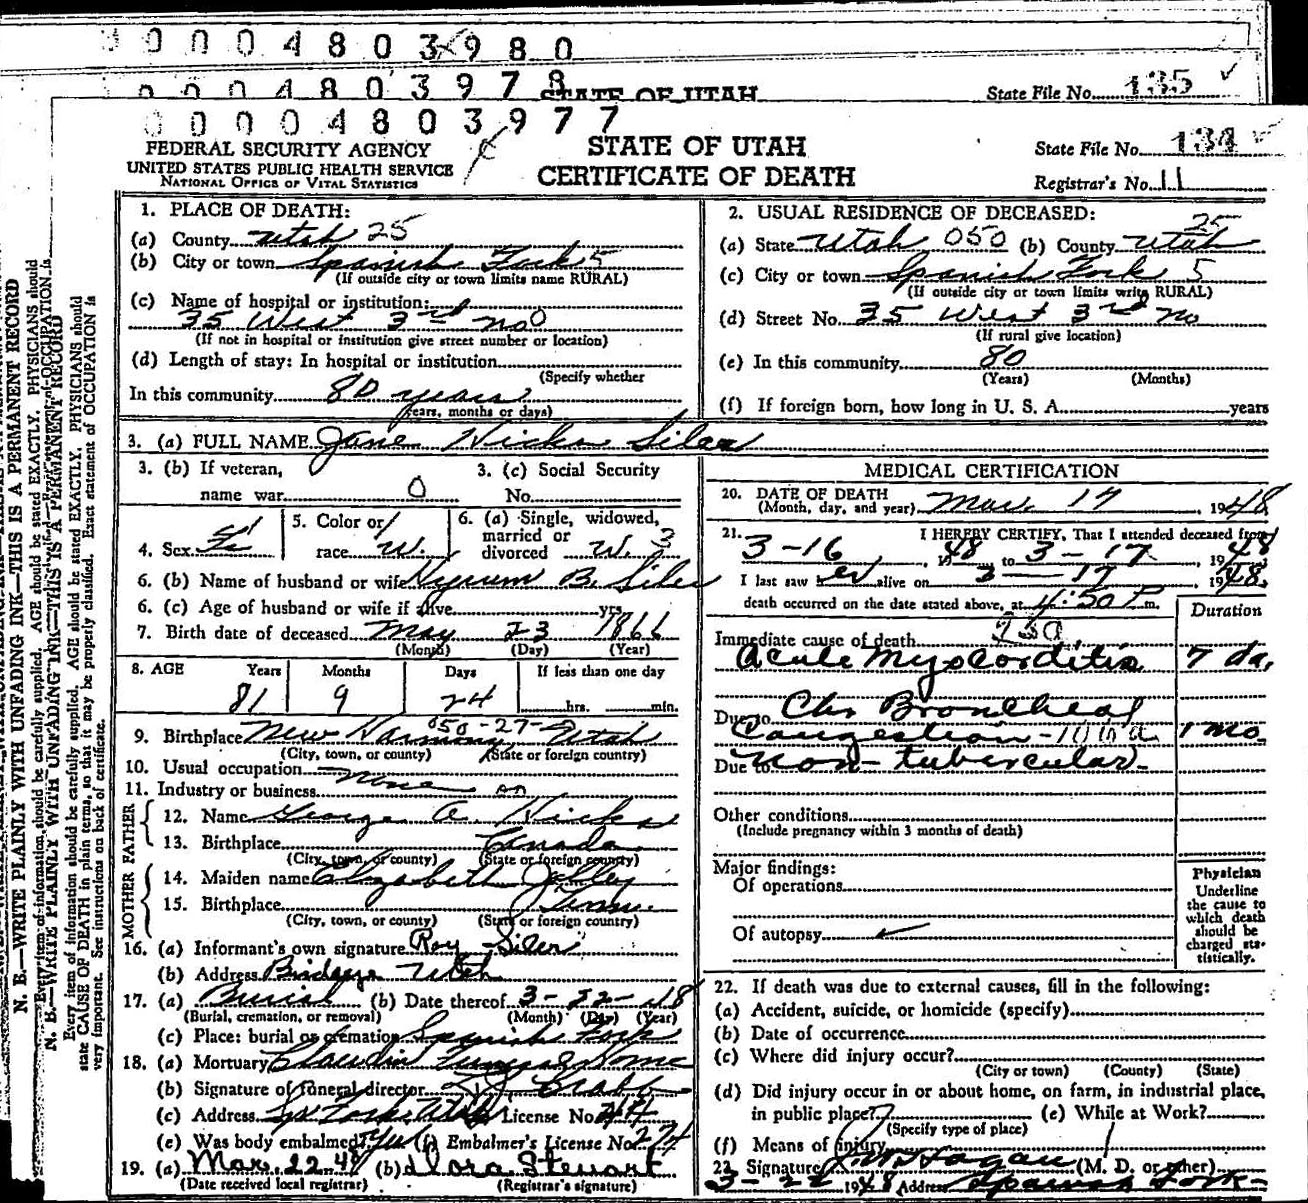 0 0 0 4 8 0 3 9 8 0
0 0 0 4 8 0 3 9 7 8 STATE OF UTAH State File No. 135
0 0 0 0 4 8 0 3 9 7 7
FEDERAL SECURITY AGENCY
UNITED STATES PUBLIC HEALTH SERVICE
NATIONAL OFFICE OF VITAL STATISTICS
STATE OF UTAH
CERTIFICATE OF DEATH
State File No. 134
Registrar's No. 11
N. B.—WRITE PLAINLY WITH UNFADING INK—THIS IS A PERMANENT RECORD
Every item of information should be carefully supplied. AGE should be stated EXACTLY. PHYSICIANS should
state CAUSE OF DEATH in plain terms, so that it may be properly classified. Exact statement of OCCUPATION is
very important. See instructions on back of certificate.
1. PLACE OF DEATH:
(a) County Utah 25
(b) City or town Spanish Fork 5
(If outside city or town limits name RURAL)
(c) Name of hospital or institution:
35 West 3rd No
(If not in hospital or institution give street number or location)
(d) Length of stay: In hospital or institution
(Specify whether
In this community 80 years
years, months or days)
2. USUAL RESIDENCE OF DECEASED:
25
(a) State Utah 050 (b) County Utah
(c) City or town Spanish Fork 5
(If outside city or town limits write RURAL)
(d) Street No. 35 West 3rd No
(If rural give location)
(e) In this community 80
(Years) (Months)
(f) If foreign born, how long in U. S. A. years
3. (a) FULL NAME Jane Hicks Siler
3. (b) If veteran,
name war O
3. (c) Social Security
No.
4. Sex F
5. Color or
race W.
6. (a) Single, widowed,
married or
divorced W. 3
6. (b) Name of husband or wife Hyrum B. Siler
6. (c) Age of husband or wife if alive yrs.
7. Birth date of deceased May 23 1866
(Month) (Day) (Year)
8. AGE Years Months Days If less than one day
81 9 24 hrs. min.
9. Birthplace New Harmony 050-27- Utah
(City, town, or county) (State or foreign country)
10. Usual occupation None
11. Industry or business
FATHER
12. Name George A. Hicks
13. Birthplace Canada
(City, town, or county) (State or foreign country)
MOTHER
14. Maiden name Elizabeth Jolley
15. Birthplace Tenn.
(City, town, or county) (State or foreign country)
16. (a) Informant's own signature Roy Siler
(b) Address Utah
17. (a) Burial (b) Date thereof 3-22-48
(Burial, cremation, or removal) (Month) (Day) (Year)
(c) Place: burial or cremation Spanish Fork
18. (a) Mortuary Claudin Funeral Home
(b) Signature of funeral director
(c) Address Sp. Fork, Utah License No.
(e) Was body embalmed? Yes (f) Embalmer's License No. 274
19. (a) Mar. 22-48 (b) Dora Stewart
(Date received local registrar) (Registrar's signature)
MEDICAL CERTIFICATION
20. DATE OF DEATH
(Month, day, and year) Mar. 17, 1948
21. I HEREBY CERTIFY, That I attended deceased from
3-16 1948 to 3-17, 1948
I last saw er alive on 3-17 1948.
death occurred on the date stated above, at 4:50 P.m.
Duration
Immediate cause of death
Acute Myocarditis 7 da.
Due to Chr Bronchial
Congestion - 106a 1 mo.
Due to Non-tubercular
Other conditions
(Include pregnancy within 3 months of death)
Major findings:
Of operations
Of autopsy
Physician
Underline
the cause to
which death
should be
charged sta-
tistically.
22. If death was due to external causes, fill in the following:
(a) Accident, suicide, or homicide (specify)
(b) Date of occurrence
(c) Where did injury occur?
(City or town) (County) (State)
(d) Did injury occur in or about home, on farm, in industrial place,
in public place? (e) While at Work?
(Specify type of place)
(f) Means of injury
23. Signature Hagan (M. D. or other)
3-22 1948 Address Spanish Fork